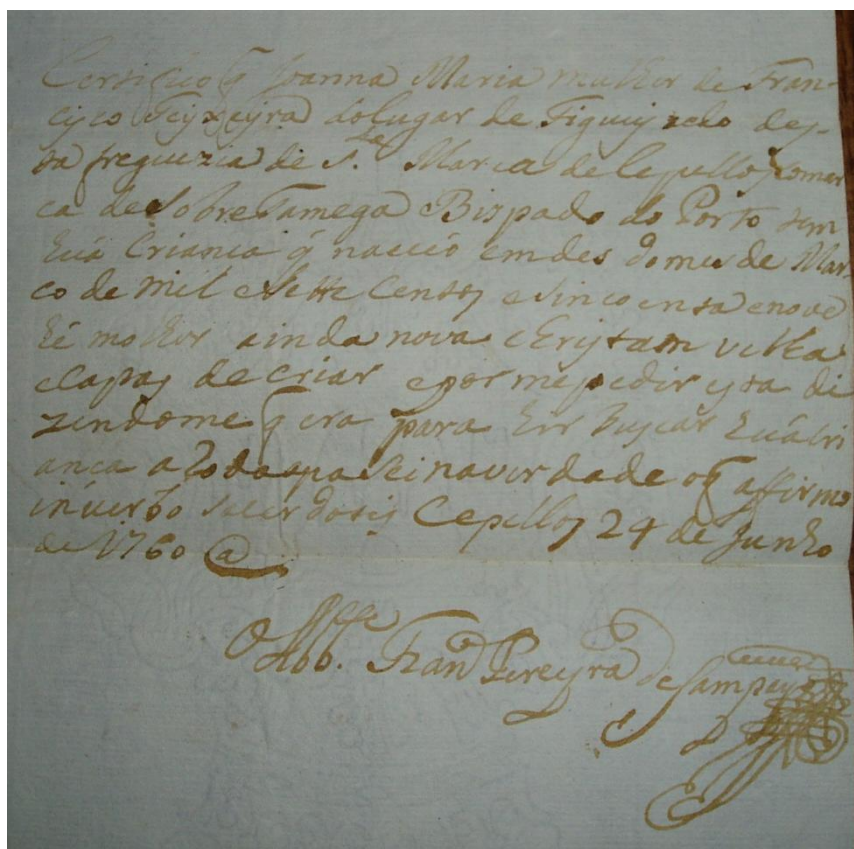 Certifico q̃ Joanna Maria mulher de Fran-
cisco Teyxeyra do lugar de Figueyredo des-
ta freguezia de S.ta Maria de Cepellos Comar
ca de Sobre Tamega Bispado do Porto tem
huã Crianca q̃ nacéo em des do mes de Mar
co de mil e Sette Centos e Sincoenta e nove
hé molher ainda nova e Cristam velha
e Capas de criar e por me pedir esta di
zendome q̃ era para hir buscar huã Cri
anca a Roda a pasei na verdade o q̃ affirmo
in verbo Sacerdotis Cepellos 24 de Junho
de 1760 @
O Abb.e Fran.co Pereyra de Sampayo